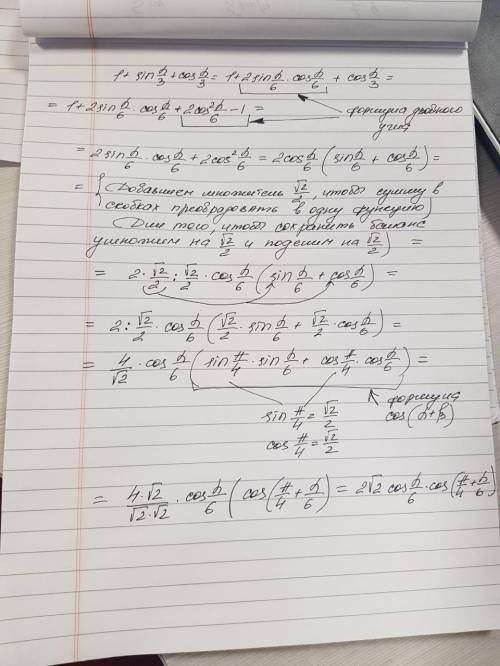 1 + sin α/3 + cos α/3 = 1 + 2 sin α/6 · cos α/6 + cos α/3 =
= 1 + 2 sin α/6 · cos α/6 + 2cos² α/6 - 1 =
формула двойного
угла
= 2 sin α/6 · cos α/6 + 2cos² α/6 = 2cos α/6 (sin α/6 + cos α/6) =
= { Добавляем множитель √2/2, чтобы сумму в
скобках преобразовать в одну функцию
Для того, чтобы сохранить баланс
умножим на √2/2 и поделим на √2/2) =
= 2 · √2/2 : √2/2 · cos α/6 (sin α/6 + cos α/6) =
= 2 : √2/2 · cos α/6 (√2/2 · sin α/6 + √2/2 · cos α/6) =
= 4/√2 · cos α/6 (sin π/4 · sin α/6 + cos π/4 · cos α/6) =
формула
cos(α+β)
sin π/4 = √2/2
cos π/4 = √2/2
= 4·√2/√2·√2 · cos α/6 (cos(π/4 + α/6) = 2√2 cos α/6 · cos(π/4 + α/6)